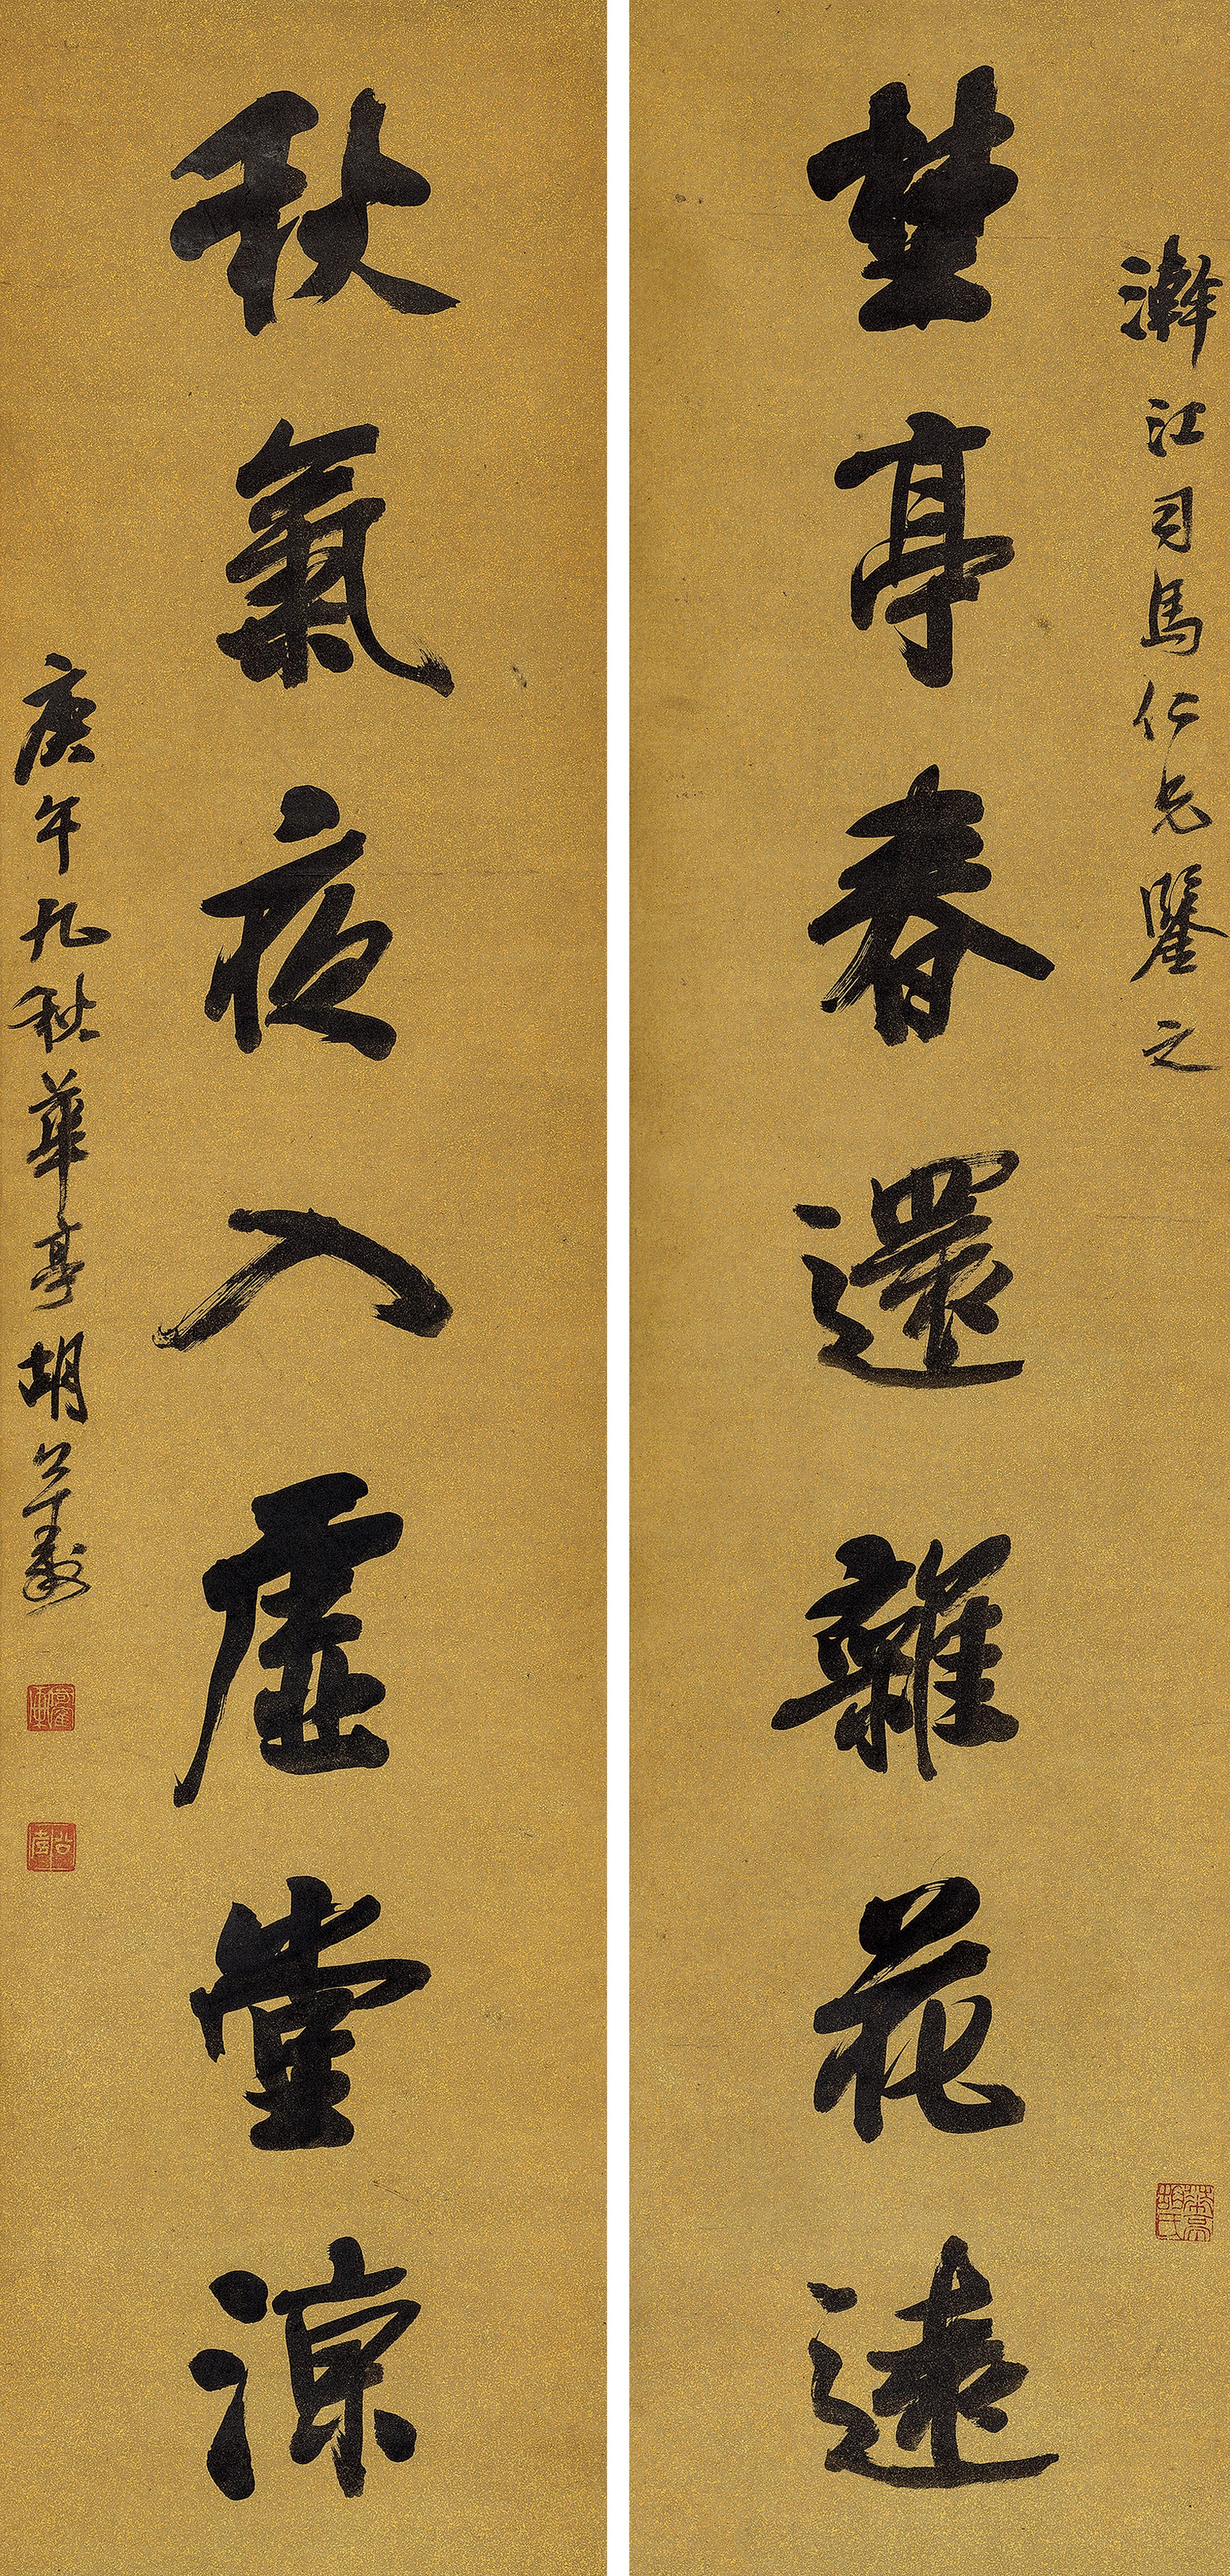 瀚江司馬仁兄鑒之
楚亭春還雜花遠
秋氣夜入虛堂涼
庚午九秋華亭胡公壽
華亭胡氏